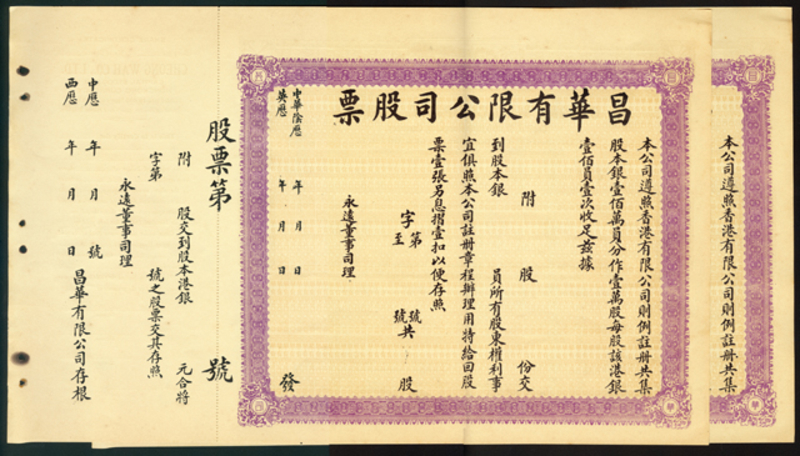 昌華有限公司股票
本公司遵照香港有限公司則例註册共集
股本銀壹佰萬員分作壹萬股每股該港銀
壹佰員壹次收足兹據
附 股 份交
到股本銀 員所有股東權利事
宜俱照本公司註册章程辦理用特給回股
票壹張另息摺壹扣以便存照
字 第 號 共 股
至 號
永遠董事司理
中華陰曆 年 月 日
英曆 年 月 日 發
股票第 號
附 股交到股本港銀 元合將
字第 號之股票交其存照
永遠董事司理
中曆 年 月 號
西曆 年 月 日 昌華有限公司存根
本公司遵照香港有限公司則例註册共集